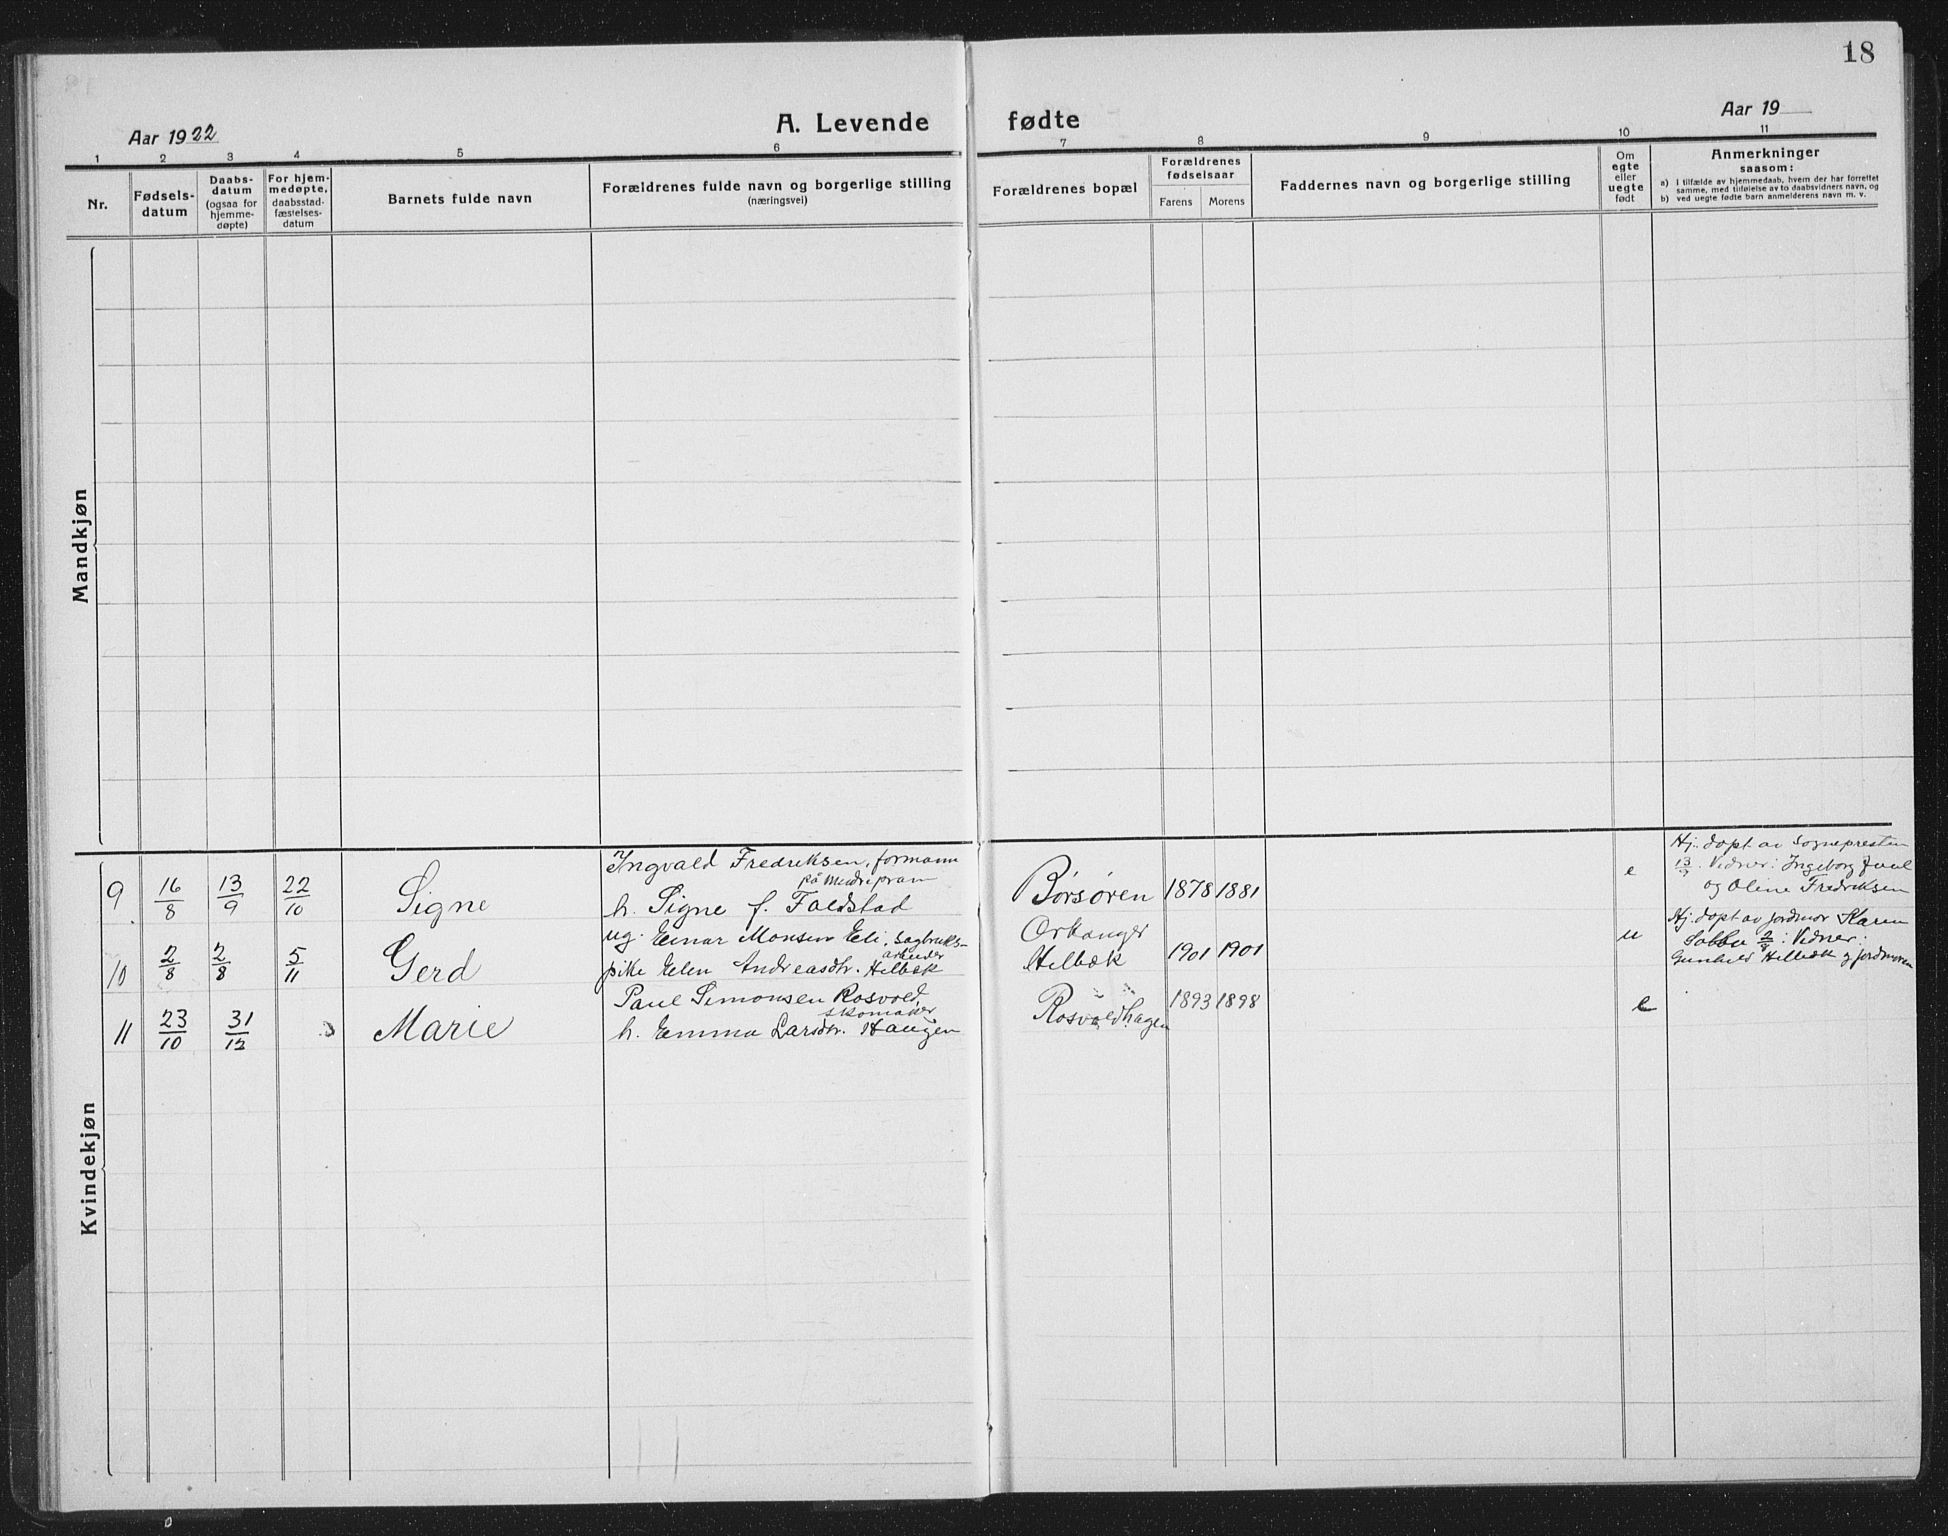 18
Aar 1922
A. Levende fødte
Aar 19
1 2 3 4 5 6 7 8 9 10 11
Nr.
Fødsels-
datum
Daabs-
datum
(ogsaa for
hjemme-
døpte)
For hjem-
medøpte,
daabsstad-
fæstelses-
datum
Barnets fulde navn
Forældrenes fulde navn og borgerlige stilling
(næringsvei)
Forældrenes bopæl
Forældrenes
fødselsaar
Farens Morens
Faddernes navn og borgerlige stilling
Om
egte
eller
uegte
født
Anmerkninger
saasom:
a) I tilfælde av hjemmedaab, hvem der har forrettet
samme, med tilføielse av to daabsvidners navn, og
b) ved uegte fødte barn anmelderens navn m. v.
Mandkjøn
Kvindekjøn
9 16/8 13/9 22/10 Signe
Ingvald Fredriksen, formann
på
h. Signe f. Foldstad
Børsøren 1878 1881
e
Hj. døpt av Sognepresten
13/9. Vidner: Ingeborg Juul
og Oline Fredriksen
10 2/8 2/8 5/11 Gerd
ug. Einar Monsen Eli, Sagbruks-
arbeider
pike Elen Andreasdtr. Hilbæk
Orkanger
Hilbæk
1901 1901
u
Hj. døpt av jordmor Karen
2/8: Vidner:
Gunhild Hilbæk og jordmoren
11 23/10 31/12 Marie
Paul Simonsen Rosvold,
skomaker
h. Emma Larsdtr. Haugen
Rosvoldhagen
1893 1898
e